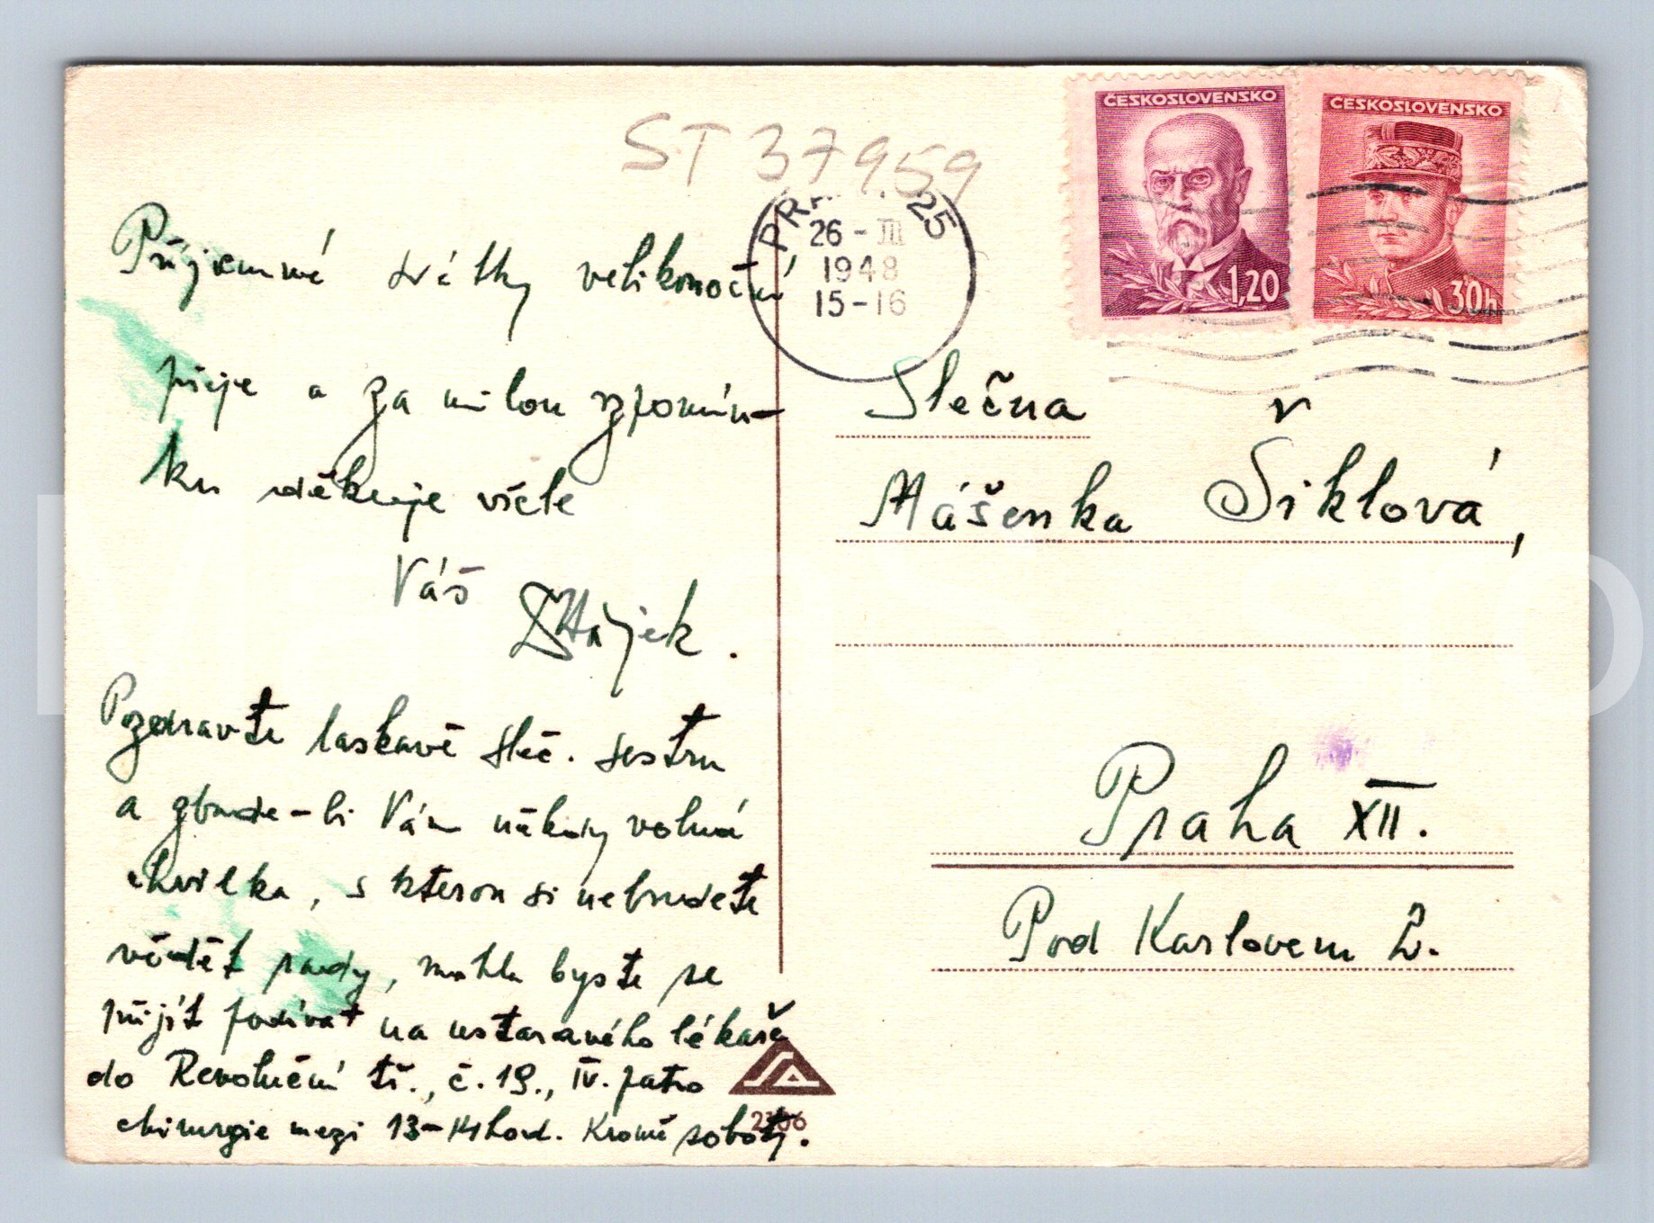 ST 37959
ČESKOSLOVENSKO
1,20
ČESKOSLOVENSKO
30h
PRAHA 25
26-III
1948
15-16
Příjemné svátky velikonoční
přeje a za milou vzpomín-
ku děkuje vřele
Váš
Hájek.
Pozdravte laskavě sleč. sestru
a zbude-li Vám někdy volná
chvilka, s kterou si nebudete
vědět rady, mohla byste se
přijít podívat na ustaraného lékaře
do Revoluční tř., č. 19., IV. patro
chirurgie mezi 13-14 hod. Kromě soboty.
Slečna
Mášenka Šiklová,
Praha XII.
Pod Karlovem 2.
2306